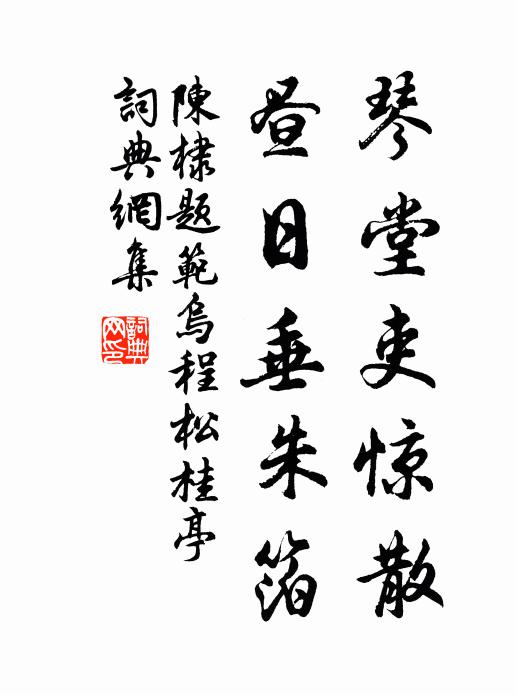 琴堂吏惊散
昼日垂朱箔
陳棣题範烏程松桂亭
詞典網集
詞典网印